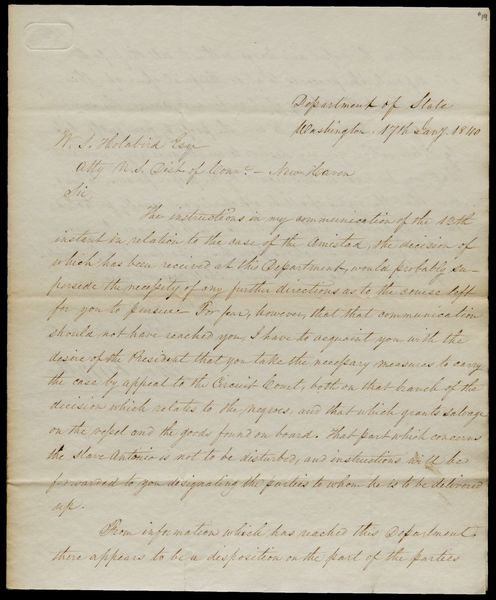 Department of State
Washington. 17th Jany. 1840
W. S. Holabird Esqr
Atty U. S. Dist. of Connt. – New Haven
Sir
The instructions in my communication of the 13th
instant in relation to the case of the Amistad, the decision of
which has been received at this Department, would probably su-
persede the necessity of any further directions as to the course left
for you to pursue. For fear, however, that that communication
should not have reached you, I have to acquaint you with the
desire of the President that you take the necessary measures to carry
the case by appeal to the Circuit Court, both on that branch of the
decision which relates to the negroes, and that which grants salvage
on the vessel and the goods found on board. That part which concerns
the slave Antonio is not to be disturbed, and instructions will be
forwarded to you designating the parties to whom he is to be delivered
up.
From information which has reached this Department
there appears to be a disposition on the part of the parties